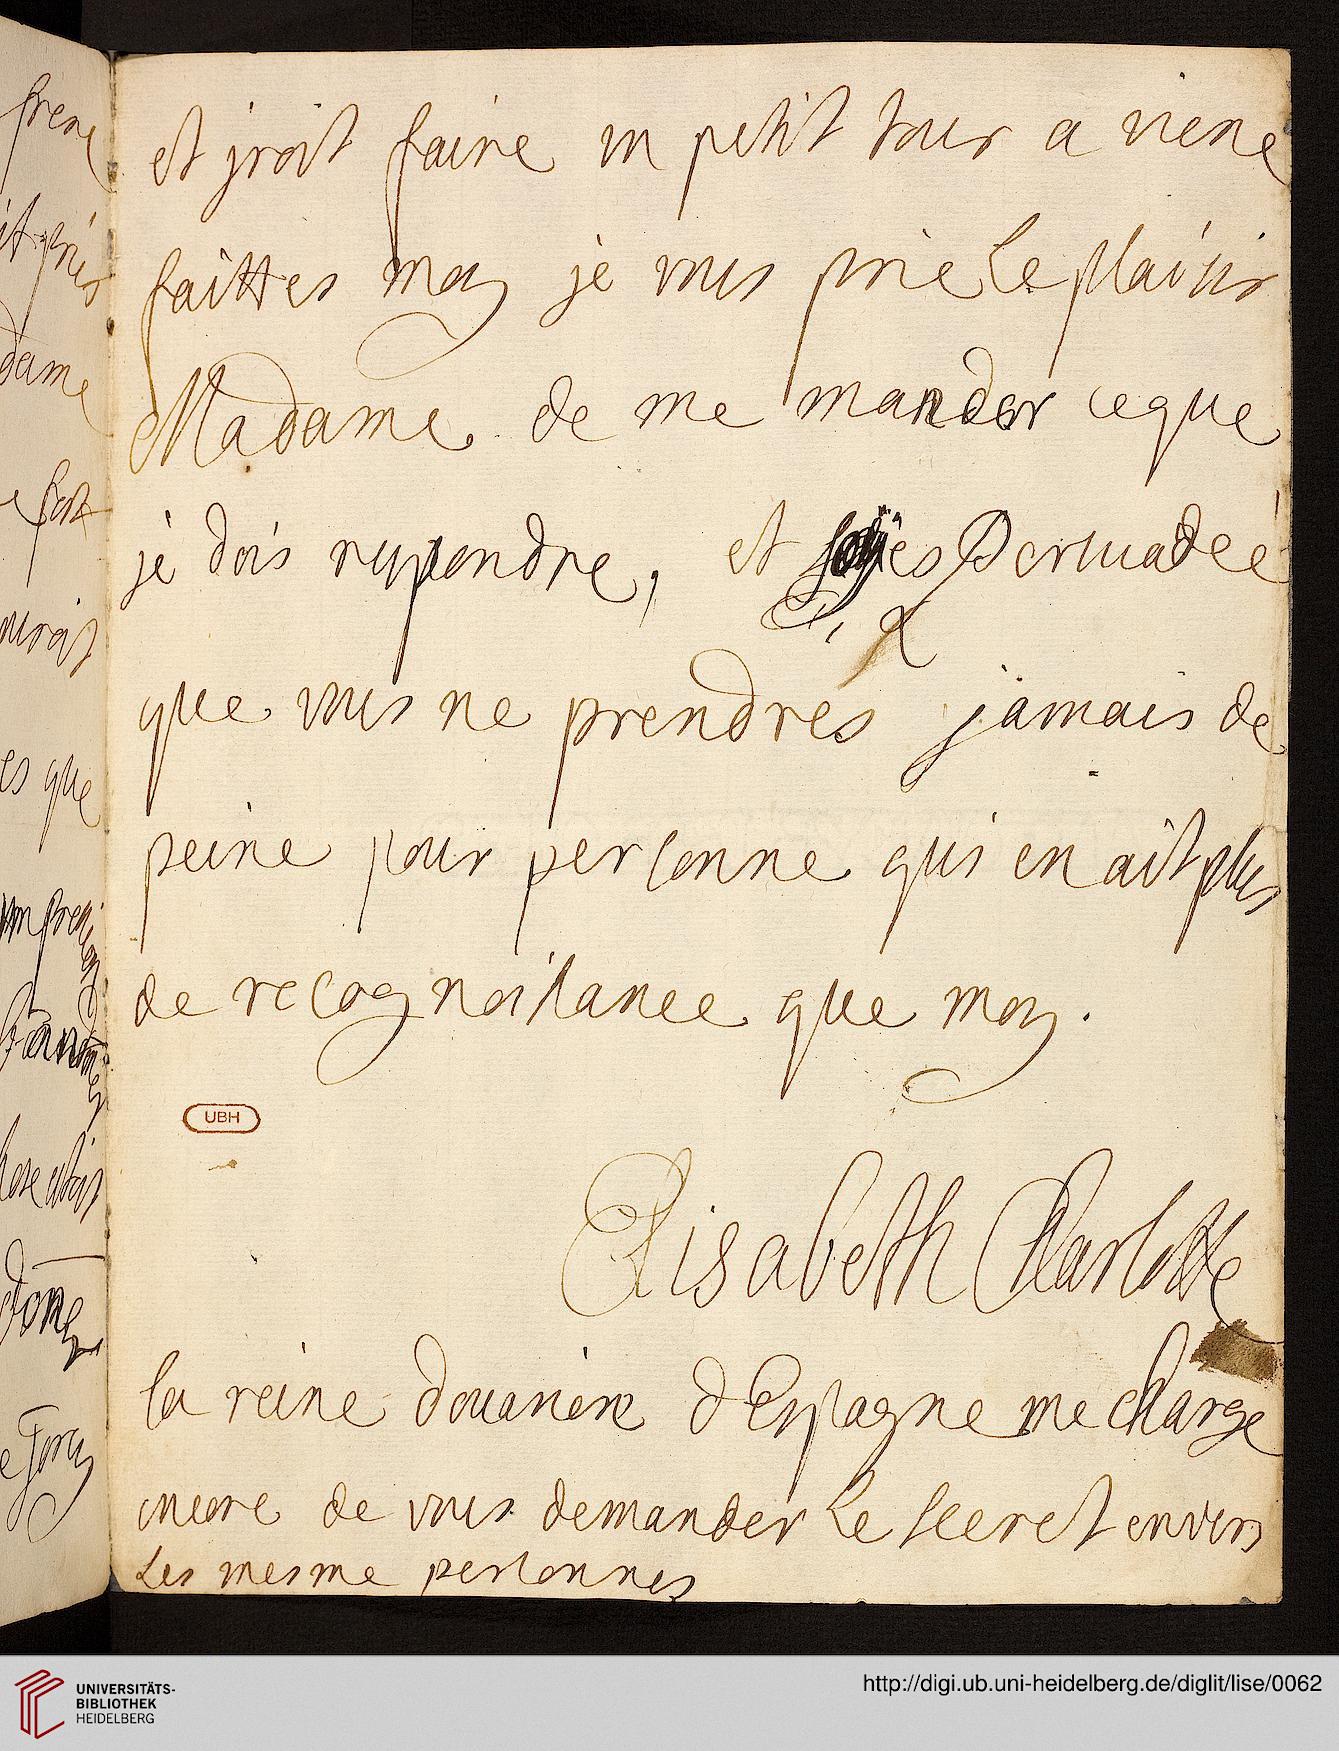 et jroit faire un petit tour a viene
faittes moy je vous prie Le plaisir
Madame de me mander ceque
je dois respondre, et soyës Persuadëe
que vous ne prendres jamais de
peine pour personne qui en ait plus
de recognoisance que moy.
UBH
Elisabeth Charlotte
la reine douariere d'Espagne me charge
encore de vous demander Le secret envers
Les mesme personnes
frere
dame
fort
es que
UNIVERSITÄTS-
BIBLIOTHEK
HEIDELBERG
http://digi.ub.uni-heidelberg.de/diglit/lise/0062